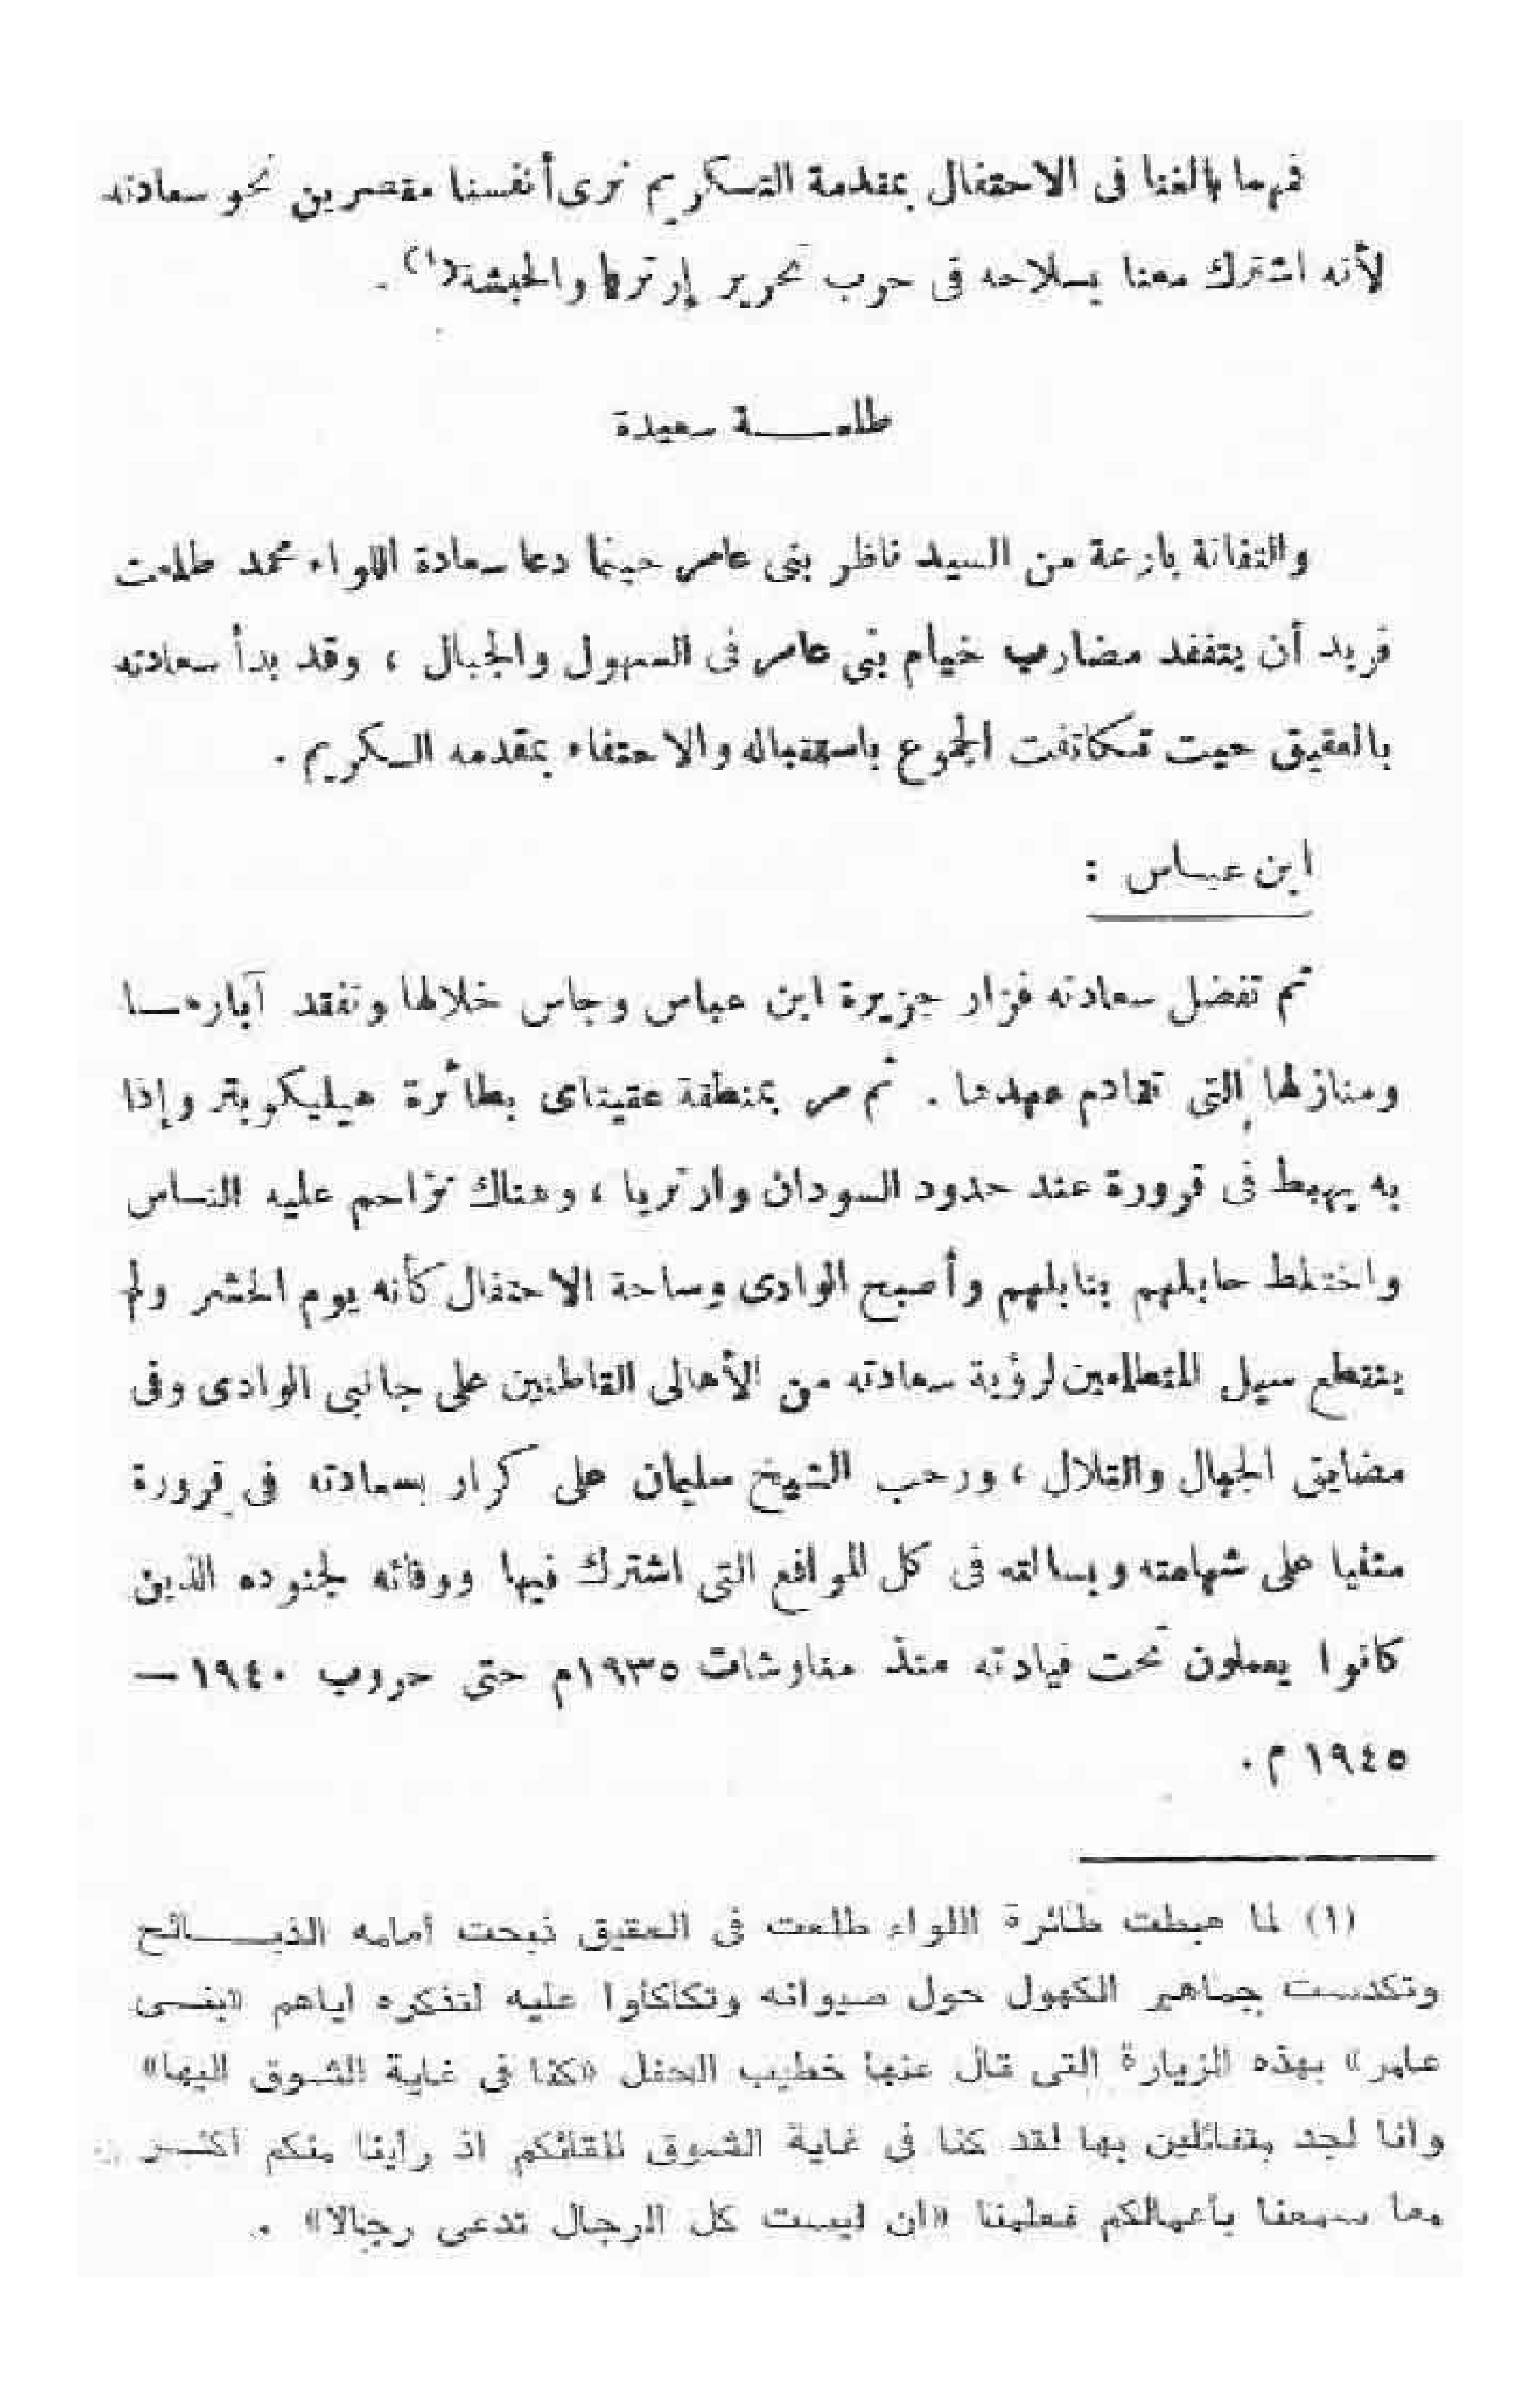 فمهما بالغنا فى الاحتفال بمقدمة التكريم نرى أنفسنا مقصرين نحو سعادته
لأنه اشترك معنا بسلاحه فى حرب تحرير إرتريا والحبشة(١) .
طلعــــة سعيدة
والتفاتة بازعة من السيد ناظر بنى عامر حينما دعا سعادة اللواء محمد طلعت
فريد أن يتفقد مضارب خيام بنى عامر فى السهول والجبال ، وقد بدأ سعادته
بالعقيق حيث تكاتفت الجموع باستقباله والاحتفاء بمقدمه الكريم .
ابن عبـاس :
ثم تفضل سعادته فزار جزيرة ابن عباس وجاس خلالها وتفقد آبارهــا
ومنازلها التى تقادم عهدها . ثم مر بمنطقة عقيتاى بطائرة هيليكوبتر وإذا
به يهبط فى قرورة عند حدود السودان وارتريا ، وهناك تزاحم عليه الناس
واختلط حابلهم بنابلهم وأصبح الوادى وساحة الاحتفال كأنه يوم الحشر ولم
ينقطع سيل المتطلعين لرؤية سعادته من الأهالى القاطنين على جانبى الوادى وفى
مضايق الجبال والتلال ، ورحب الشيخ سليمان على كرار بسعادته فى قرورة
مثنيا على شهامته وبسالته فى كل المواقع التى اشترك فيها ووفائه لجنوده الذين
كانوا يعملون تحت قيادته منذ مناوشات ١٩٣٥م حتى حروب ١٩٤٠ —
١٩٤٥ م .
(١) لما هبطت طائرة اللواء طلعت فى العقيق ذبحت أمامه الذبــــائح
وتكدست جماهير الكهول حول صيوانه وتكاكاوا عليه لتذكره اياهم «ببنى
عامر» بهذه الزيارة التى قال عنها خطيب الحفل «كنا فى غاية الشوق اليها»
وانا لجد متفائلين بها لقد كنا فى غاية الشوق للقائكم اذ راينا منكم اكثــر
مما سمعنا بأعمالكم فعلمنا «ان ليست كل الرجال تدعى رجالا» .